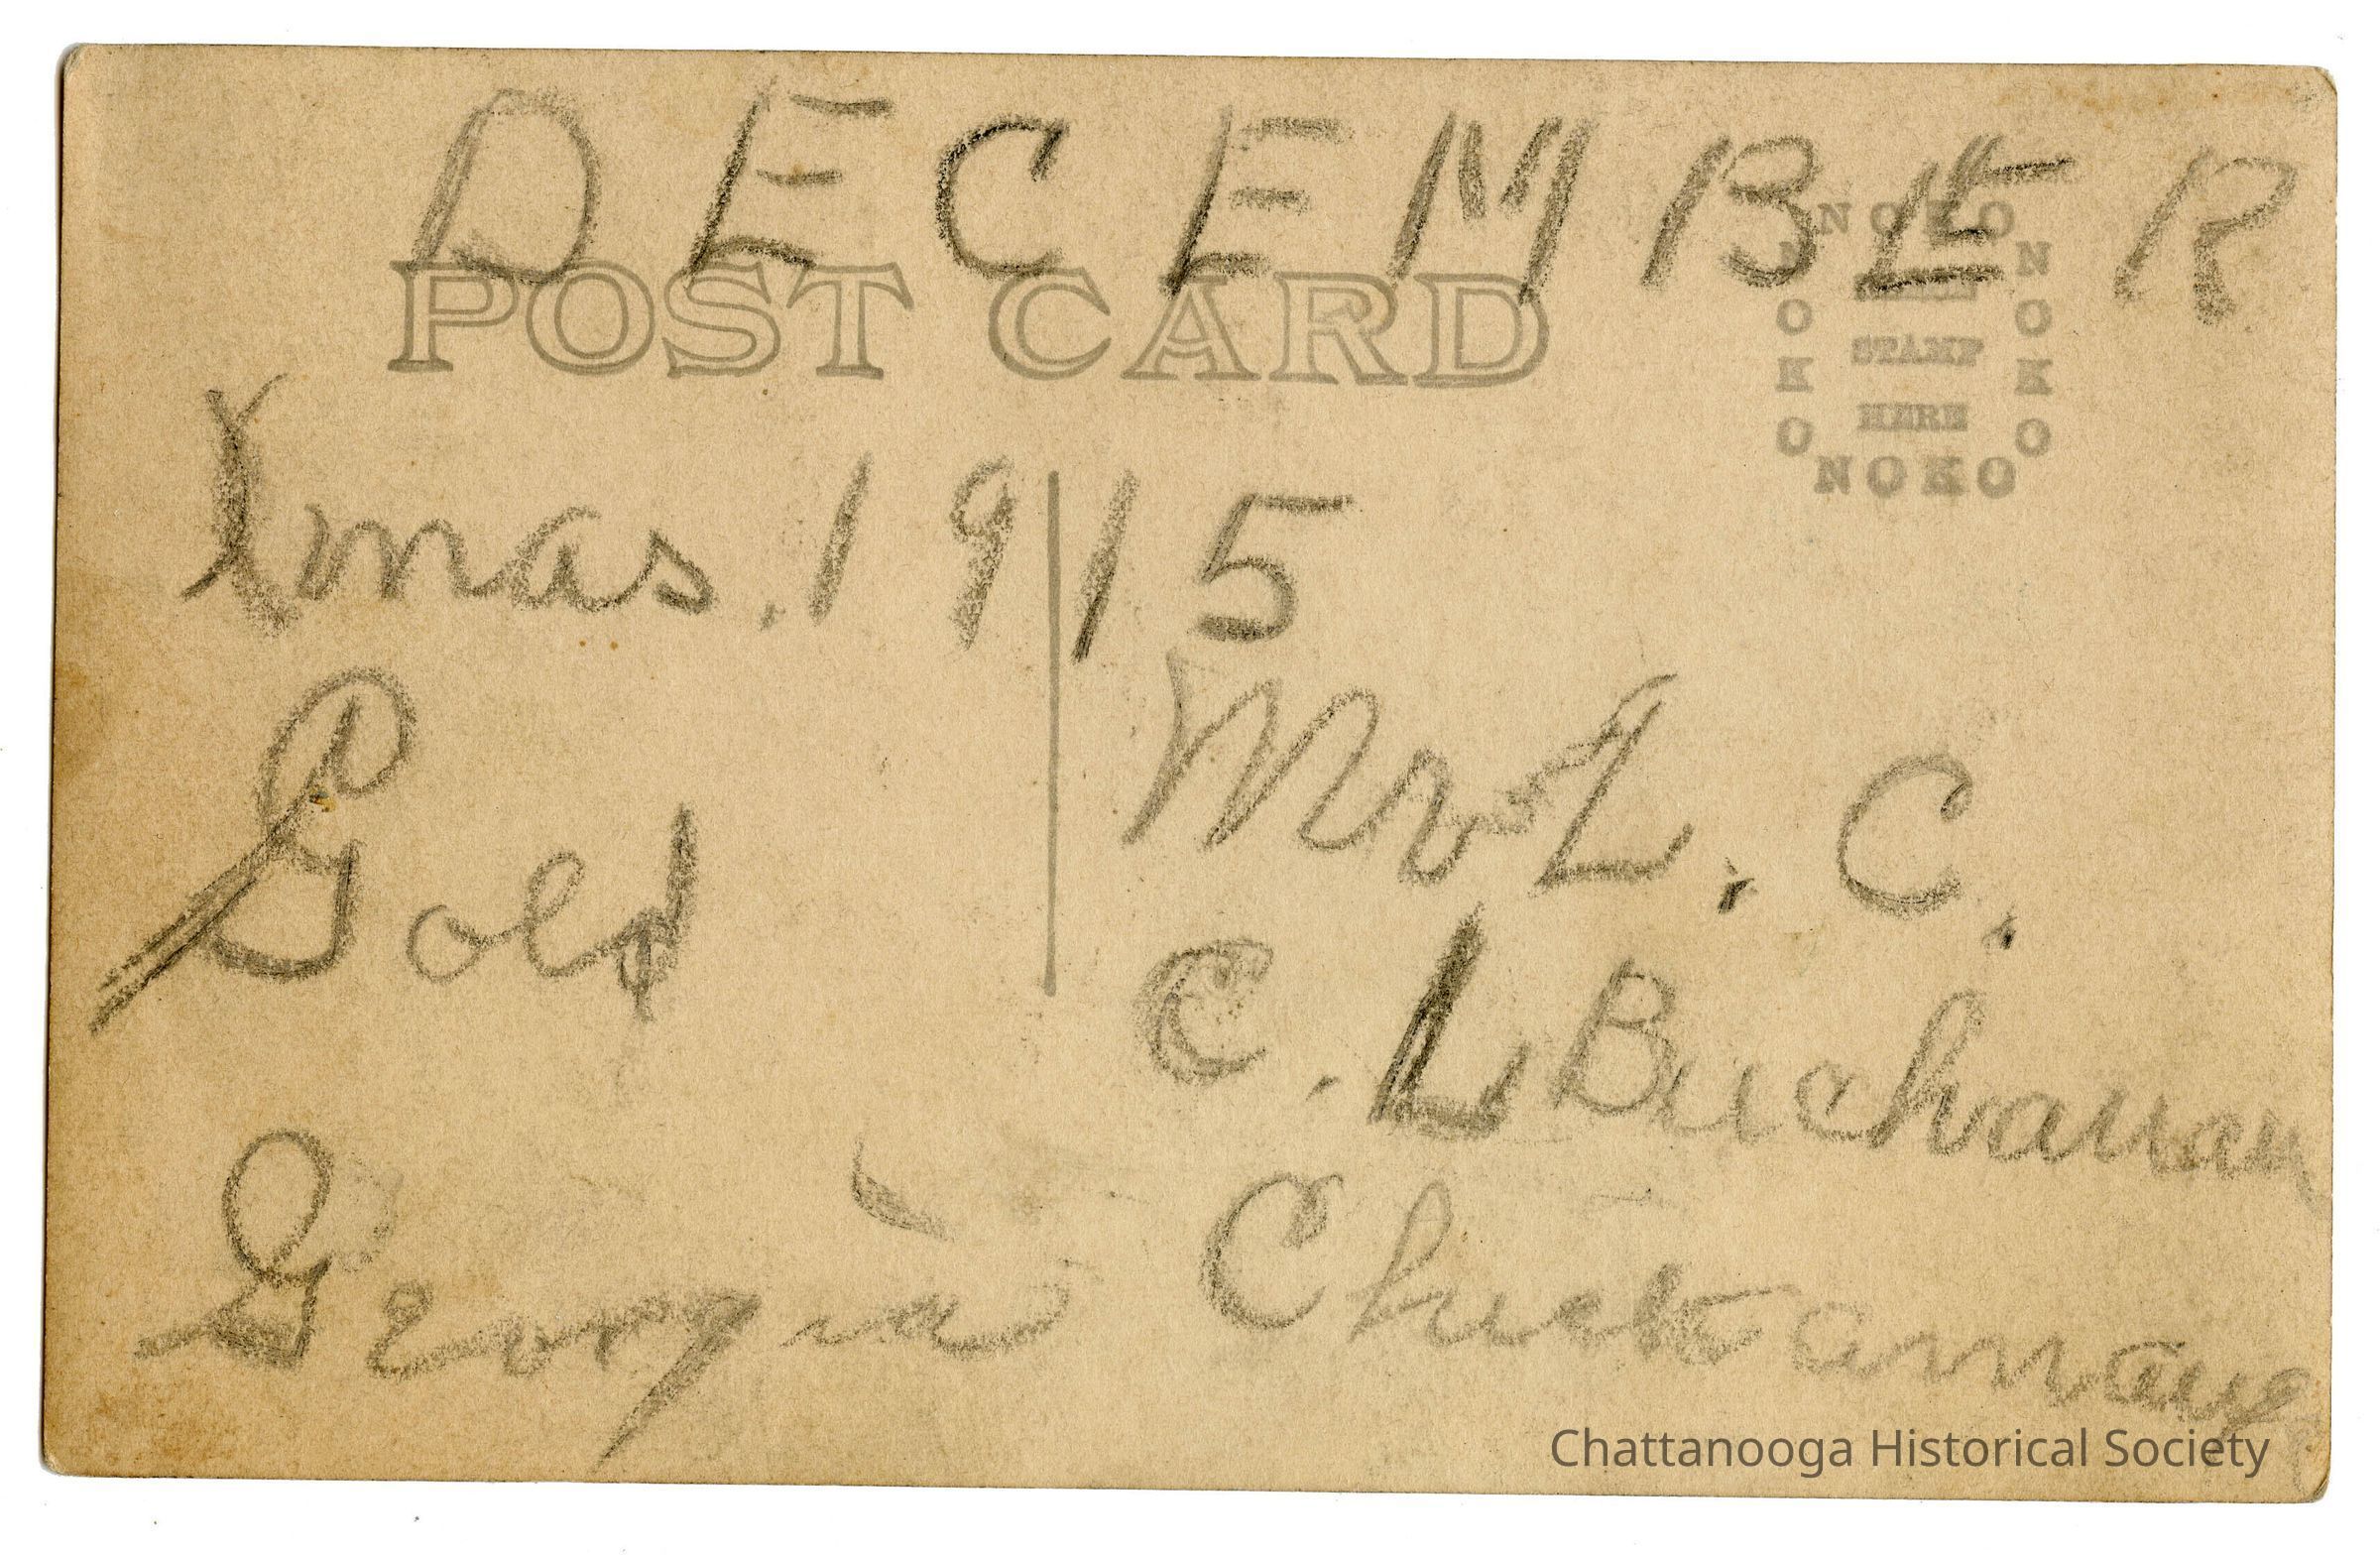 DECEMBER
POST CARD
NOKO
NOKO
NOKO
NOKO
STAMP
HERE
Xmas. 1915
Mr L. C.
Gold
C. L Buchanan
Georgia
Chickamauga
Chattanooga Historical Society